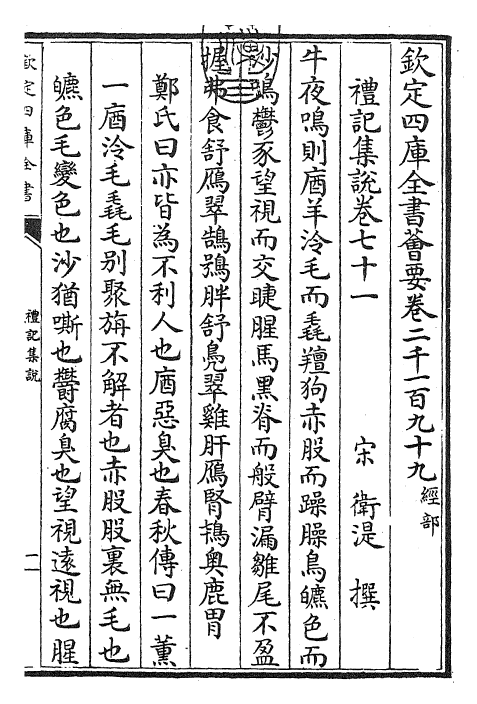 欽定四庫全書薈要卷二千一百九十九 經部
禮記集說卷七十一
宋 衛湜 撰
牛夜鳴則庮羊泠毛而毳羶狗赤股而躁臊鳥皫色而
沙鳴鬱豕望視而交睫腥馬黑脊而般臂漏雛尾不盈
握弗食舒鴈翠鵠鴞胖舒鳧翠雞肝鴈腎鴇奧鹿胃
鄭氏曰亦皆為不利人也庮惡臭也春秋傳曰一薰
一庮泠毛毳毛别聚旃不解者也赤股股裏無毛也
皫色毛變色也沙猶嘶也鬱腐臭也望視逺視也腥
欽定四庫全書
禮記集說
一